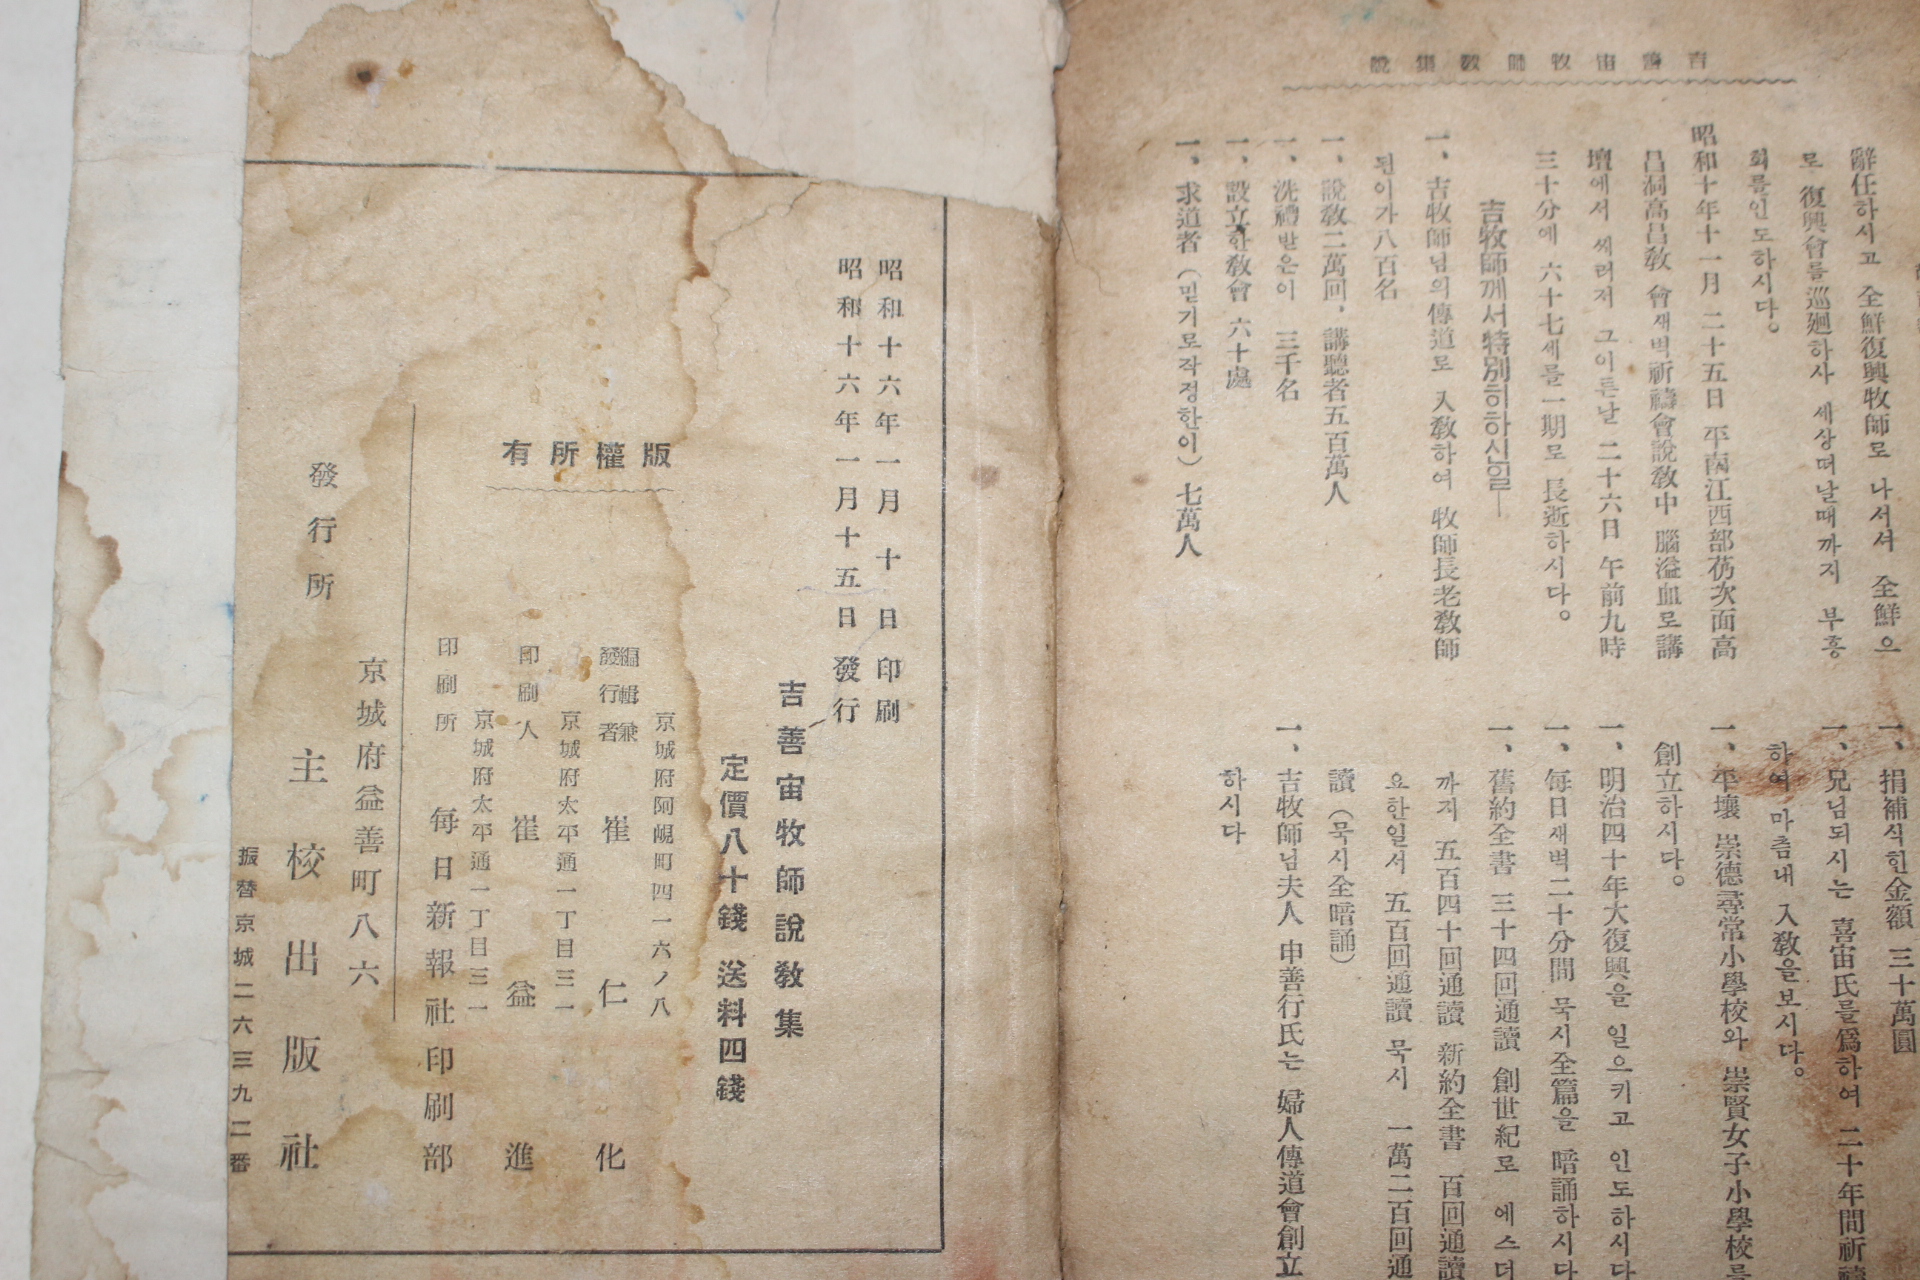 吉善宙牧師說敎集
辭任하시고 全鮮復興牧師로 나서셔 全鮮으
로 復興會를巡廻하사 세상떠날때까지 부흥
회를인도하시다。
昭和十年十一月 二十五日 平南江西部芿次面高
昌洞高昌敎會새벽祈禱會說敎中 腦溢血로講
壇에서 쎄러저 그이튼날 二十六日 午前九時
三十分에 六十七세를一期로 長逝하시다。
吉牧師께서特別히하신일—
一、吉牧師님의傳道로 入敎하여 牧師長老敎師
된이가八百名
一、說敎二萬回，講聽者五百萬人
一、洗禮받은이 三千名
一、設立한敎會 六十處
一、求道者（믿기로작정한이）七萬人
一、捐補식힌金額 三十萬圓
一、兄님되시는 喜宙氏를爲하여 二十年間祈禱
하여 마츰내 入敎을보시다。
一、平壤 崇德尋常小學校와 崇賢女子小學校를
創立하시다。
一、明治四十年大復興을 일으키고 인도하시다
一、每日새벽二十分間 묵시全篇을 暗誦하시다
一、舊約全書 三十四回通讀 創世紀로 에스더
까지 五百四十回通讀 新約全書 百回通讀
요한일서 五百回通讀 묵시 一萬二百回通
讀（묵시全暗誦）
一、吉牧師님夫人 申善行氏는 婦人傳道會創立
하시다
昭和十六年一月十日印刷
昭和十六年一月十五日發行
吉善宙牧師說敎集
定價八十錢 送料四錢
版權所有
京城府阿峴町四一六ノ八
編輯兼發行者 崔仁化
京城府太平通一丁目三一
印刷人 崔益進
京城府太平通一丁目三一
印刷所 每日新報社印刷部
京城府益善町八六
發行所 主校出版社
振替京城二六三九二番